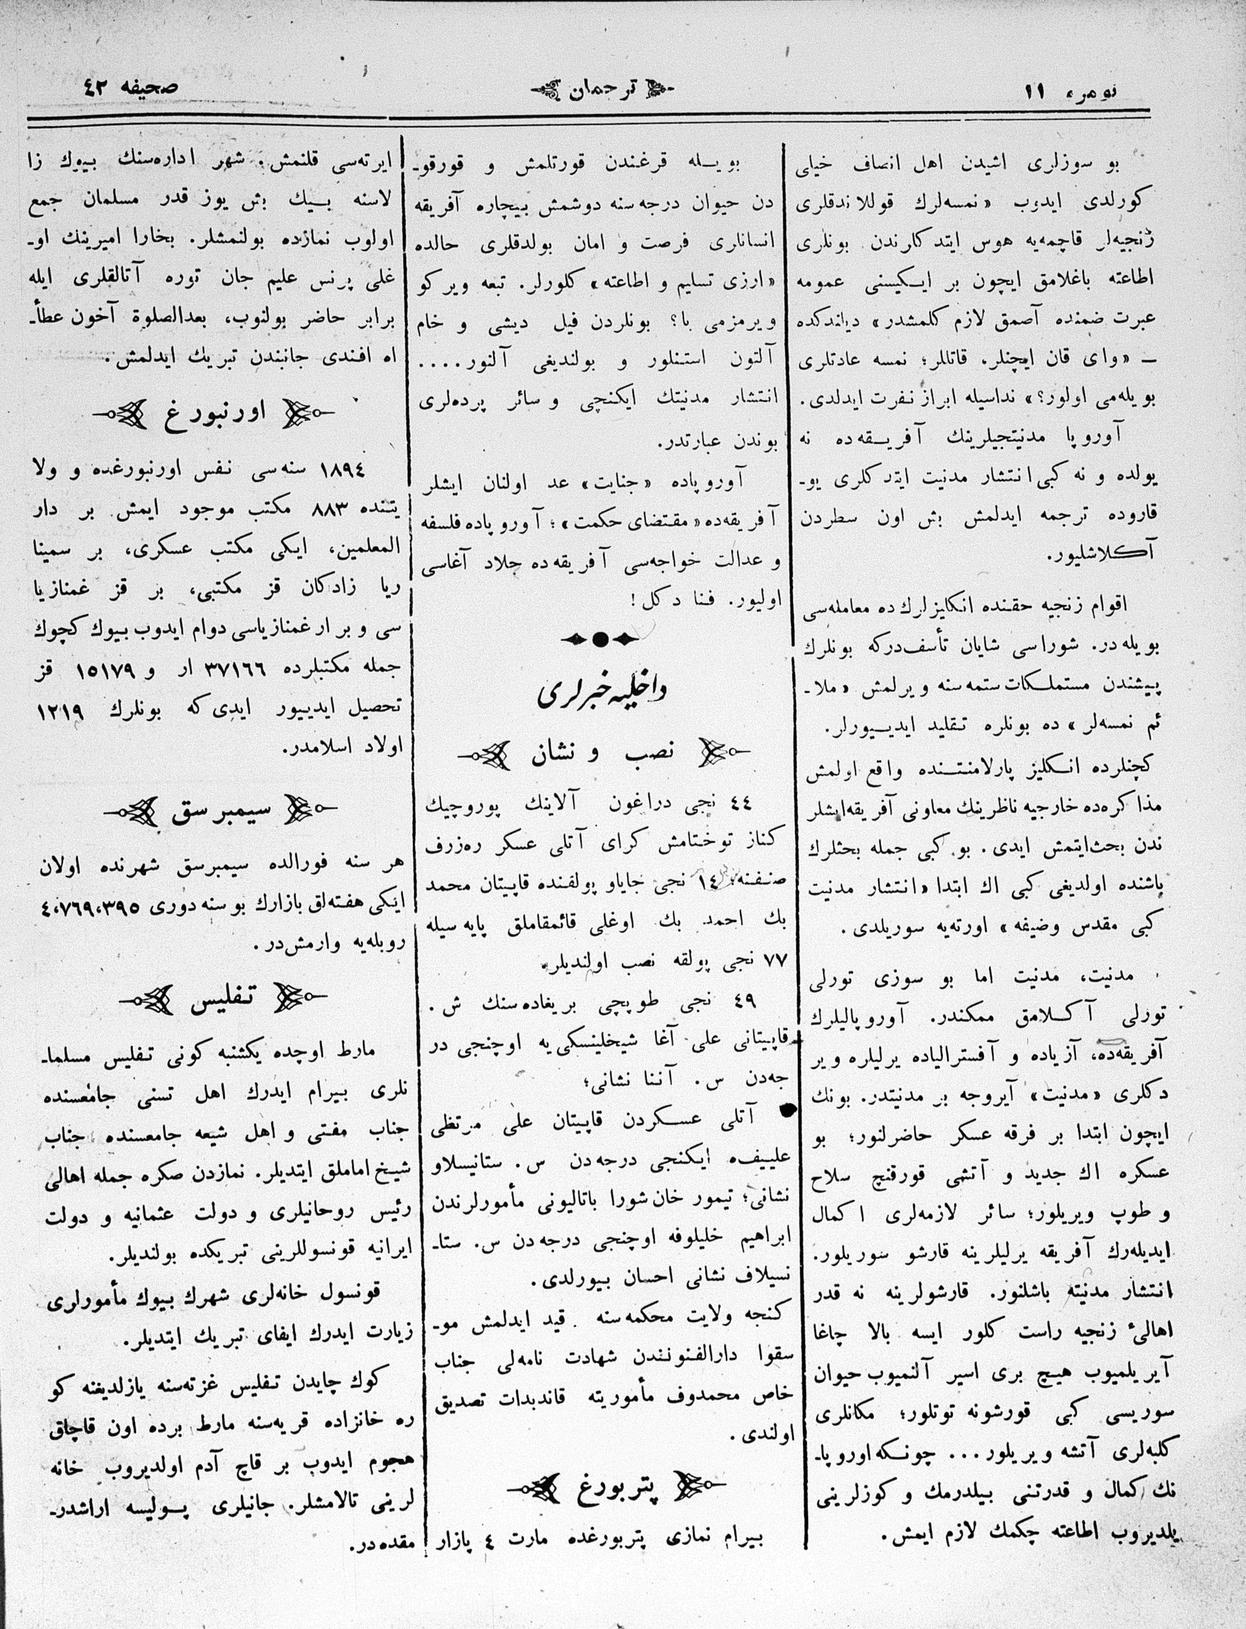 نومره ١١
ترجمان
صحیفه ٤٢
بو سوزلری اشیدن اهل انصاف خیلی
کورلدی ایدوب «نمسه‌لرك قوللاندقلری
زنجیه‌لر قاچمه‌یه هوس ایتدکلرندن بونلری
اطاعته باغلامق ایچون بر ایکیسنی عمومه
عبرت ضمنده آصمق لازم کلمشدر» دیاندکده
— «وای قان ایچنلر، قاتللر؛ نمسه عادتلری
بویله‌می اولور؟» نداسیله ابراز نفرت ایدلدی.
آوروپا مدنیتجیلرینك آفریقه‌ده نه
یولده و نه کبی انتشار مدنیت ایتدکلری یو-
قاروده ترجمه ایدلمش بش اون سطردن
آکلاشلیور.
اقوام زنجیه حقنده انکلیزلرك ده معامله‌سی
بویله‌در. شوراسی شایان تأسف‌درکه بونلرك
پیشندن مستملکات ستمه‌سنه ویرلمش «ملا-
ئم نمسه‌لر» ده بونلره تقلید ایدیورلر.
کچنلرده انکلیز پارلامنتنده واقع اولمش
مذاکره‌ده خارجیه ناظرینك معاونی آفریقه‌ایشلر
ندن بحث‌ایتمش ایدی. بو کبی جمله بحثلرك
باشنده اولدیغی کبی اك ابتدا «انتشار مدنیت
کبی مقدس وضیفه» اورته‌یه سوریلدی.
مدنیت، مدنیت اما بو سوزی تورلی
تورلی آکلامق ممکندر. آوروپالیلرك
آفریقه‌ده، آزیاده و آفسترالیاده یرلیلره ویر
دکلری «مدنیت» آیروجه بر مدنیتدر. بونك
ایچون ابتدا بر فرقه عسکر حاضرلنور؛ بو
عسکره اك جدید و آتشی قورقنچ سلاح
و طوپ ویریلور؛ سائر لازمه‌لری اکمال
ایدیله‌رك آفریقه یرلیلرینه قارشو سوریلور.
انتشار مدنیته باشلنور. قارشولرینه نه قدر
اهالیٔ زنجیه راست کلور ایسه بالا چاغا
آیریلمیوب هیچ بری اسیر آلنمیوب حیوان
سوریسی کبی قورشونه توتلور؛ مکانلری
کلبه‌لری آتشه ویریلور... چونکه‌ اوروپا-
نك کمال و قدرتنی بیلدرمك و کوزلرینی
یلدیروب اطاعته چکمك لازم ایمش.
بویله قرغندن قورتلمش و قورقو-
دن حیوان درجه‌سنه دوشمش بیچاره آفریقه
انسانلری فرصت و امان بولدقلری حالده
«ارزی تسلیم و اطاعته» کلورلر. تبعه ویرکو
ویرمزمی با؟ بونلردن فیل دیشی و خام
آلتون استنلور و بولندیغی آلنور....
انتشار مدنیتك ایکنچی و سائر پرده‌لری
بوندن عبارتدر.
آوروپاده «جنایت» عد اولنان ایشلر
آفریقه‌ده «مقتضای حکمت»؛ آوروپاده فلسفه
و عدالت خواجه‌سی آفریقه‌ده جلاد آغاسی
اولیور. فنا دکل!
داخلیه خبرلری
نصب و نشان
٤٤ نجی دراغون آلاینك پوروچیك
کناز توختامش کرای آتلی عسکر ره‌زرف
صنفنه، ١٤ نجی جایاو پولقنده قاپیتان محمد
بك احمد بك اوغلی قائمقاملق پایه سیله
٧٧ نجی پولقه نصب اولندیلر.
٤٩ نجی طوپچی بریغاده سنك ش.
قاپیتانی علی آغا شیخلینسکی‌یه اوچنجی در
جه‌دن س. آننا نشانی؛
آتلی عسکردن قاپیتان علی مرتظی
علییف‌ه ایکنجی درجه‌دن س. ستانیسلاو
نشانی؛ تیمور خان شورا باتالیونی مأمورلرندن
ابراهیم خلیلوفه اوچنجی درجه‌دن س. ستا-
نسیلاف نشانی احسان بیورلدی.
کنجه ولایت محکمه‌سنه قید ایدلمش مو-
سقوا دارالفنونندن شهادت نامه‌لی جناب
خاص محمدوف مأموریته قاندبدات تصدیق
اولندی.
پتربورغ
بیرام نمازی پتربورغده مارت ٤ پازار
ایرته‌سی قلنمش. شهر اداره‌سنك بیوك زا
لاسنه بیك بش یوز قدر مسلمان جمع
اولوب نمازده بولنمشلر. بخارا امیرینك او-
غلی پرنس علیم جان توره آتالقلری ایله
برابر حاضر بولنوب، بعدالصلوة آخون عطأ-
اه افندی جانبندن تبریك ایدلمش.
اورنبورغ
١٨٩٤ سنه‌سی نفس اورنبورغده و ولا
یتنده ٨٨٣ مکتب موجود ایمش بر دار
المعلمین، ایکی مکتب عسکری، بر سمینا
ریا زادکان قز مکتبی، بر قز غمنازیا
سی و بر ار غمنازیاسی دوام ایدوب بیوك کچوك
جمله مکتبلرده ٣٧١٦٦ ار و ١٥١٧٩ قز
تحصیل ایدییور ایدی‌که بونلرك ١٢١٩
اولاد اسلامدر.
سیمبرسق
هر سنه فورالده سیمبرسق شهرنده اولان
ایکی هفته‌لق بازارك بو سنه دوری ٤،٧٦٩،٣٩٥
روبله‌یه وارمش‌در.
تفلیس
مارط اوچده یکشنبه کونی تفلیس مسلما-
نلری بیرام ایدرك اهل تسنی جامعسنده
جناب مفتی و اهل شیعه جامعسنده جناب
شیخ اماملق ایتدیلر. نمازدن صکره جمله اهالی
رئیس روحانیلری و دولت عثمانیه و دولت
ایرانیه قونسوللرینی تبریکده بولندیلر.
قونسول خانه‌لری شهرك بیوك مأمورلری
زیارت ایدرك ایفای تبریك ایتدیلر.
کوك چایدن تفلیس غزته‌سنه یازلدیغنه کو
ره خانزاده قریه‌سنه مارط برده اون قاچاق
هجوم ایدوب بر قاچ آدم اولدیروب خانه
لرینی تالامشلر. جانیلری پولیسه اراشدر-
مقده‌در.